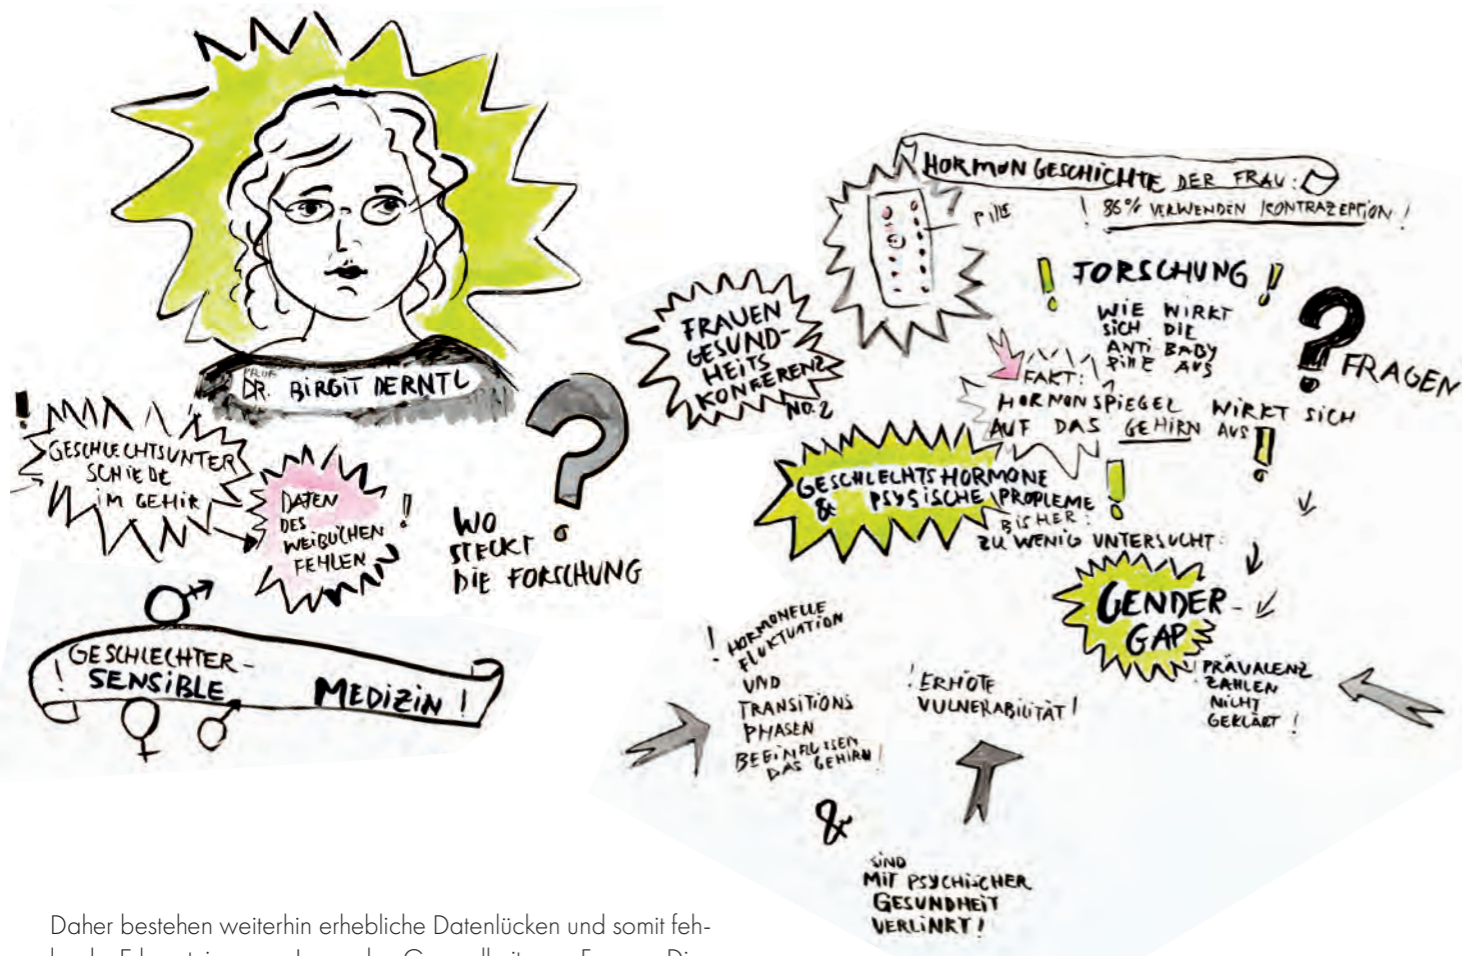 PROF.
DR. BIRGIT DERNTL
!
GESCHLECHTSUNTER
SCHIEDE
IM GEHIR
DATEN !
DES
WEIBLICHEN
FEHLEN
?
WO
STECKT
DIE FORSCHUNG
! GESCHLECHTER-
SENSIBLE MEDIZIN !
FRAUEN
GESUND-
HEITS
KONFERENZ
NO. 2
HORMONGESCHICHTE DER FRAU:
! 86% VERWENDEN KONTRAZEPTION !
PILLE
! FORSCHUNG !
WIE WIRKT
SICH DIE
ANTI BABY
PILLE AUS
? FRAGEN
FAKT:
HORMONSPIEGEL WIRKT SICH
AUF DAS GEHIRN AUS !
GESCHLECHTSHORMONE
& PSYSISCHE PROPLEME !
BISHER:
ZU WENIG UNTERSUCHT:
GENDER-
GAP
! PRÄVALENZ
ZAHLEN
NICHT
GEKLÄRT !
! HORMONELLE
FLUKTUATION
UND
TRANSITIONS
PHASEN
BEEINFLUSSEN
DAS GEHIRN !
! ERHÖTE
VULNERABILITÄT !
&
SIND
MIT PSYCHISCHER
GESUNDHEIT
VERLINKT !
Daher bestehen weiterhin erhebliche Datenlücken und somit feh-